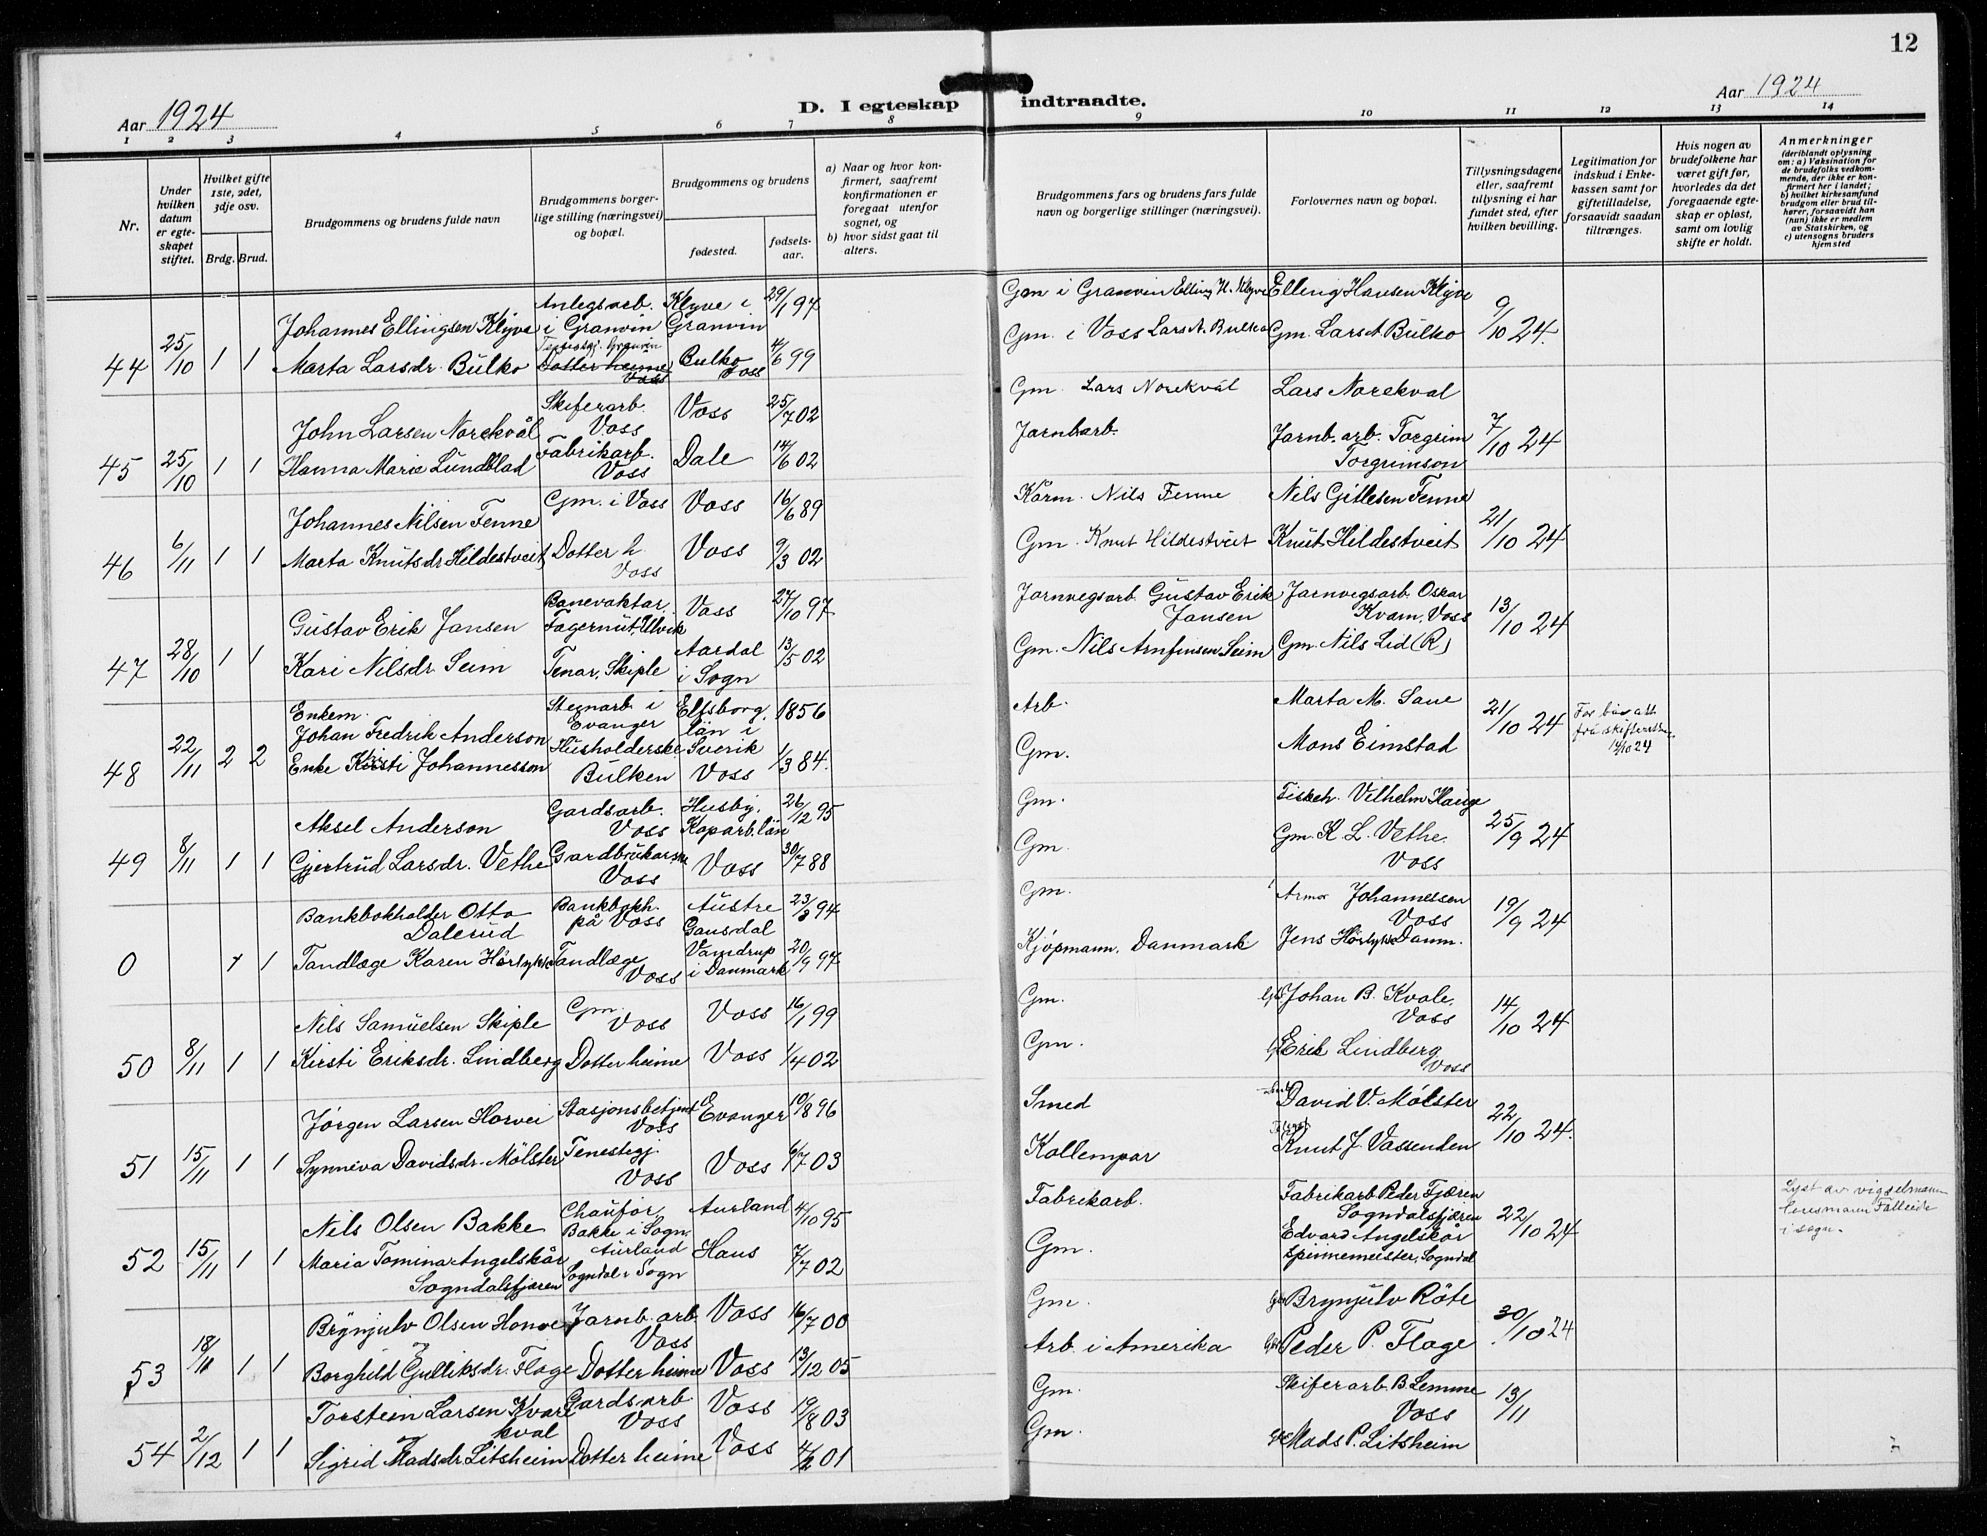 12
Aar 1924
D. I egteskap indtraadte.
Aar 1924
1 2 3 4 5 6 7 8 9 10 11 12 13 14
Nr.
Under hvilken datum er egteskapet stiftet.
Hvilket gifte 1ste, 2det, 3dje osv.
Brdg. Brud.
Brudgommens og brudens fulde navn
Brudgommens borgerlige stilling (næringsvei) og bopæl.
Brudgommens og brudens
fødested.
fødselsaar.
a) Naar og hvor konfirmert, saafremt konfirmationen er foregaat utenfor sognet, og
b) hvor sidst gaat til alters.
Brudgommens fars og brudens fars fulde navn og borgerlige stillinger (næringsvei).
Forlovernes navn og bopæl.
Tillysningsdagene eller, saafremt tillysning ei har fundet sted, efter hvilken bevilling.
Legitimation for indskud i Enkekassen samt for giftetilladelse, forsaavidt saadan tiltrænges.
Hvis nogen av brudefolkene har været gift før, hvorledes da det foregaaende egteskap er opløst, samt om lovlig skifte er holdt.
Anmerkninger
(deriblandt oplysning om: a) Vaksination for de brudefolks vedkommende, der ikke er konfirmert her i landet; b) hvilket kirkesamfund brudgom eller brud tilhører, forsaavidt han (hun) ikke er medlem av Statskirken, og c) utensogns bruders hjemsted
44 25/10 1 1
Johannes Ellingsen Klyve Anlegsarb. i Granvin Klyve i Granvin 29/1 97 Gm i Granvin Elling H. Klyve Elling Hansen Klyve 9/10 24.
Marta Larsdr. Bulko Tenestgj. Granvin Dotter heime Voss Bulko Voss 4/6 99 Gm. i Voss Lars A. Bulko Gm. Lars A Bulko
45 25/10 1 1
John Larsen Norekvål Skiferarb. Voss Voss 25/7 02 Gm. Lars Norekvål Lars Norekval 7/10 24
Hanna Marie Lundblad Fabrikarb. Voss Dale 14/6 02 Jarnbarb. Jarnb. arb. Torgrim Torgrimson
46 6/11 1 1
Johannes Nilsen Fenne Gm. i Voss Voss 16/6 89 Kårm. Nils Fenne Nils Gitlesen Fenne 21/10 24
Marta Knutsdr Hildestveit Dotter h. Voss Voss 9/3 02 Gm. Knut Hildestveit Knut Hildestveit
47 28/10 1 1
Gustav Erik Jansen Banevaktar Fagernut, Ulvik Voss 27/10 97 Jarnvegsarb Gustav Erik Jansen Jarnvegsarb Oskar Kvam, Voss 13/10 24
Kari Nilsdr. Seim Tenar, Skiple Aardal i Sogn 13/5 02 Gm. Nils Arnfinsen Seim Gm. Nils Lid (R)
48 22/11 2 2
Enkem. Johan Fredrik Anderson Stegnarb i Evanger Elfsborg. län i Sverik 1856 Arb. Marta M. Saue 21/10 24
Enke Kirsti Johannesson Husholderske Bulken Voss 1/3 84. Gm. Mons Eimstad
frå skifteretten 14/10 24
49 8/11 1 1
Aksel Anderson Gardsarb. Voss Husby, Koparb.län 26/12 95 Gm. Fiskeh. Vilhelm Hauge 25/9 24
Gjertrud Larsdr. Vethe Gardbrukarske Voss Voss 30/7 88 Gm. Gm. K. L. Vethe. Voss
0 1 1
Bankbokholder Otto Dalerud Bankbokh. på Voss Austre Gausdal 23/3 94 Gm. Johannessen Voss 19/9 24
Tandlæge Karen Hørlykke Tandlæge Voss Vamdrup i Danmark 20/9 97 Kjöpmann, Danmark Jens Hørlykke Danm.
50 8/11 1 1
Nils Samuelsen Skiple Gm. Voss Voss 16/1 99 Gm. Johan B. Kvale, Voss 14/10 24
Kirsti Eriksdr. Lindberg Dotter heime Voss 1/4 02 Gm. Erik Lindberg Voss
51 15/11 1 1
Jørgen Larsen Horvei Stasjonsbetjent Voss Evanger 10/8 96 Smed David V. Mølster 22/10 24.
Synneva Davidsdr. Mølster Tenestegj. Voss Voss 6/7 03 Knut J. Vassenden
52 15/11 1 1
Nils Olsen Bakke Chauför, Bakke i Sogn. Aurland Aurland 4/10 95 Fabrikarb. Fabrikarb Peder Fjæren Sogndalsfjæren 22/10 24
Maria Tomina Angelskår Sogndalsfjæren Sogndal i Sogn Haus 7/7 02 Gm. Edvard Angelskår Spinnemeister, Sogndal
Lyst av vigselsmann lensmann i sogn.
53 18/11 1 1
Brynjulv Olsen Honve Jarnb. arb Voss Voss 16/7 00 Gm. Brynjulv Röte 30/10 24
Borghild Gulliksdr. Flage Dotter heime Voss 13/12 05 Arb. i Amerika Peder P. Flage
54 2/12 1 1
Torstein Larsen Kvarekval Gardsarb Voss Voss 19/8 03 Gm. Skiferarb. B Lemme Voss 13/11
Sigrid Madsdr. Litsheim Dotter heime Voss 4/2 01 Gm. Mads P. Litsheim